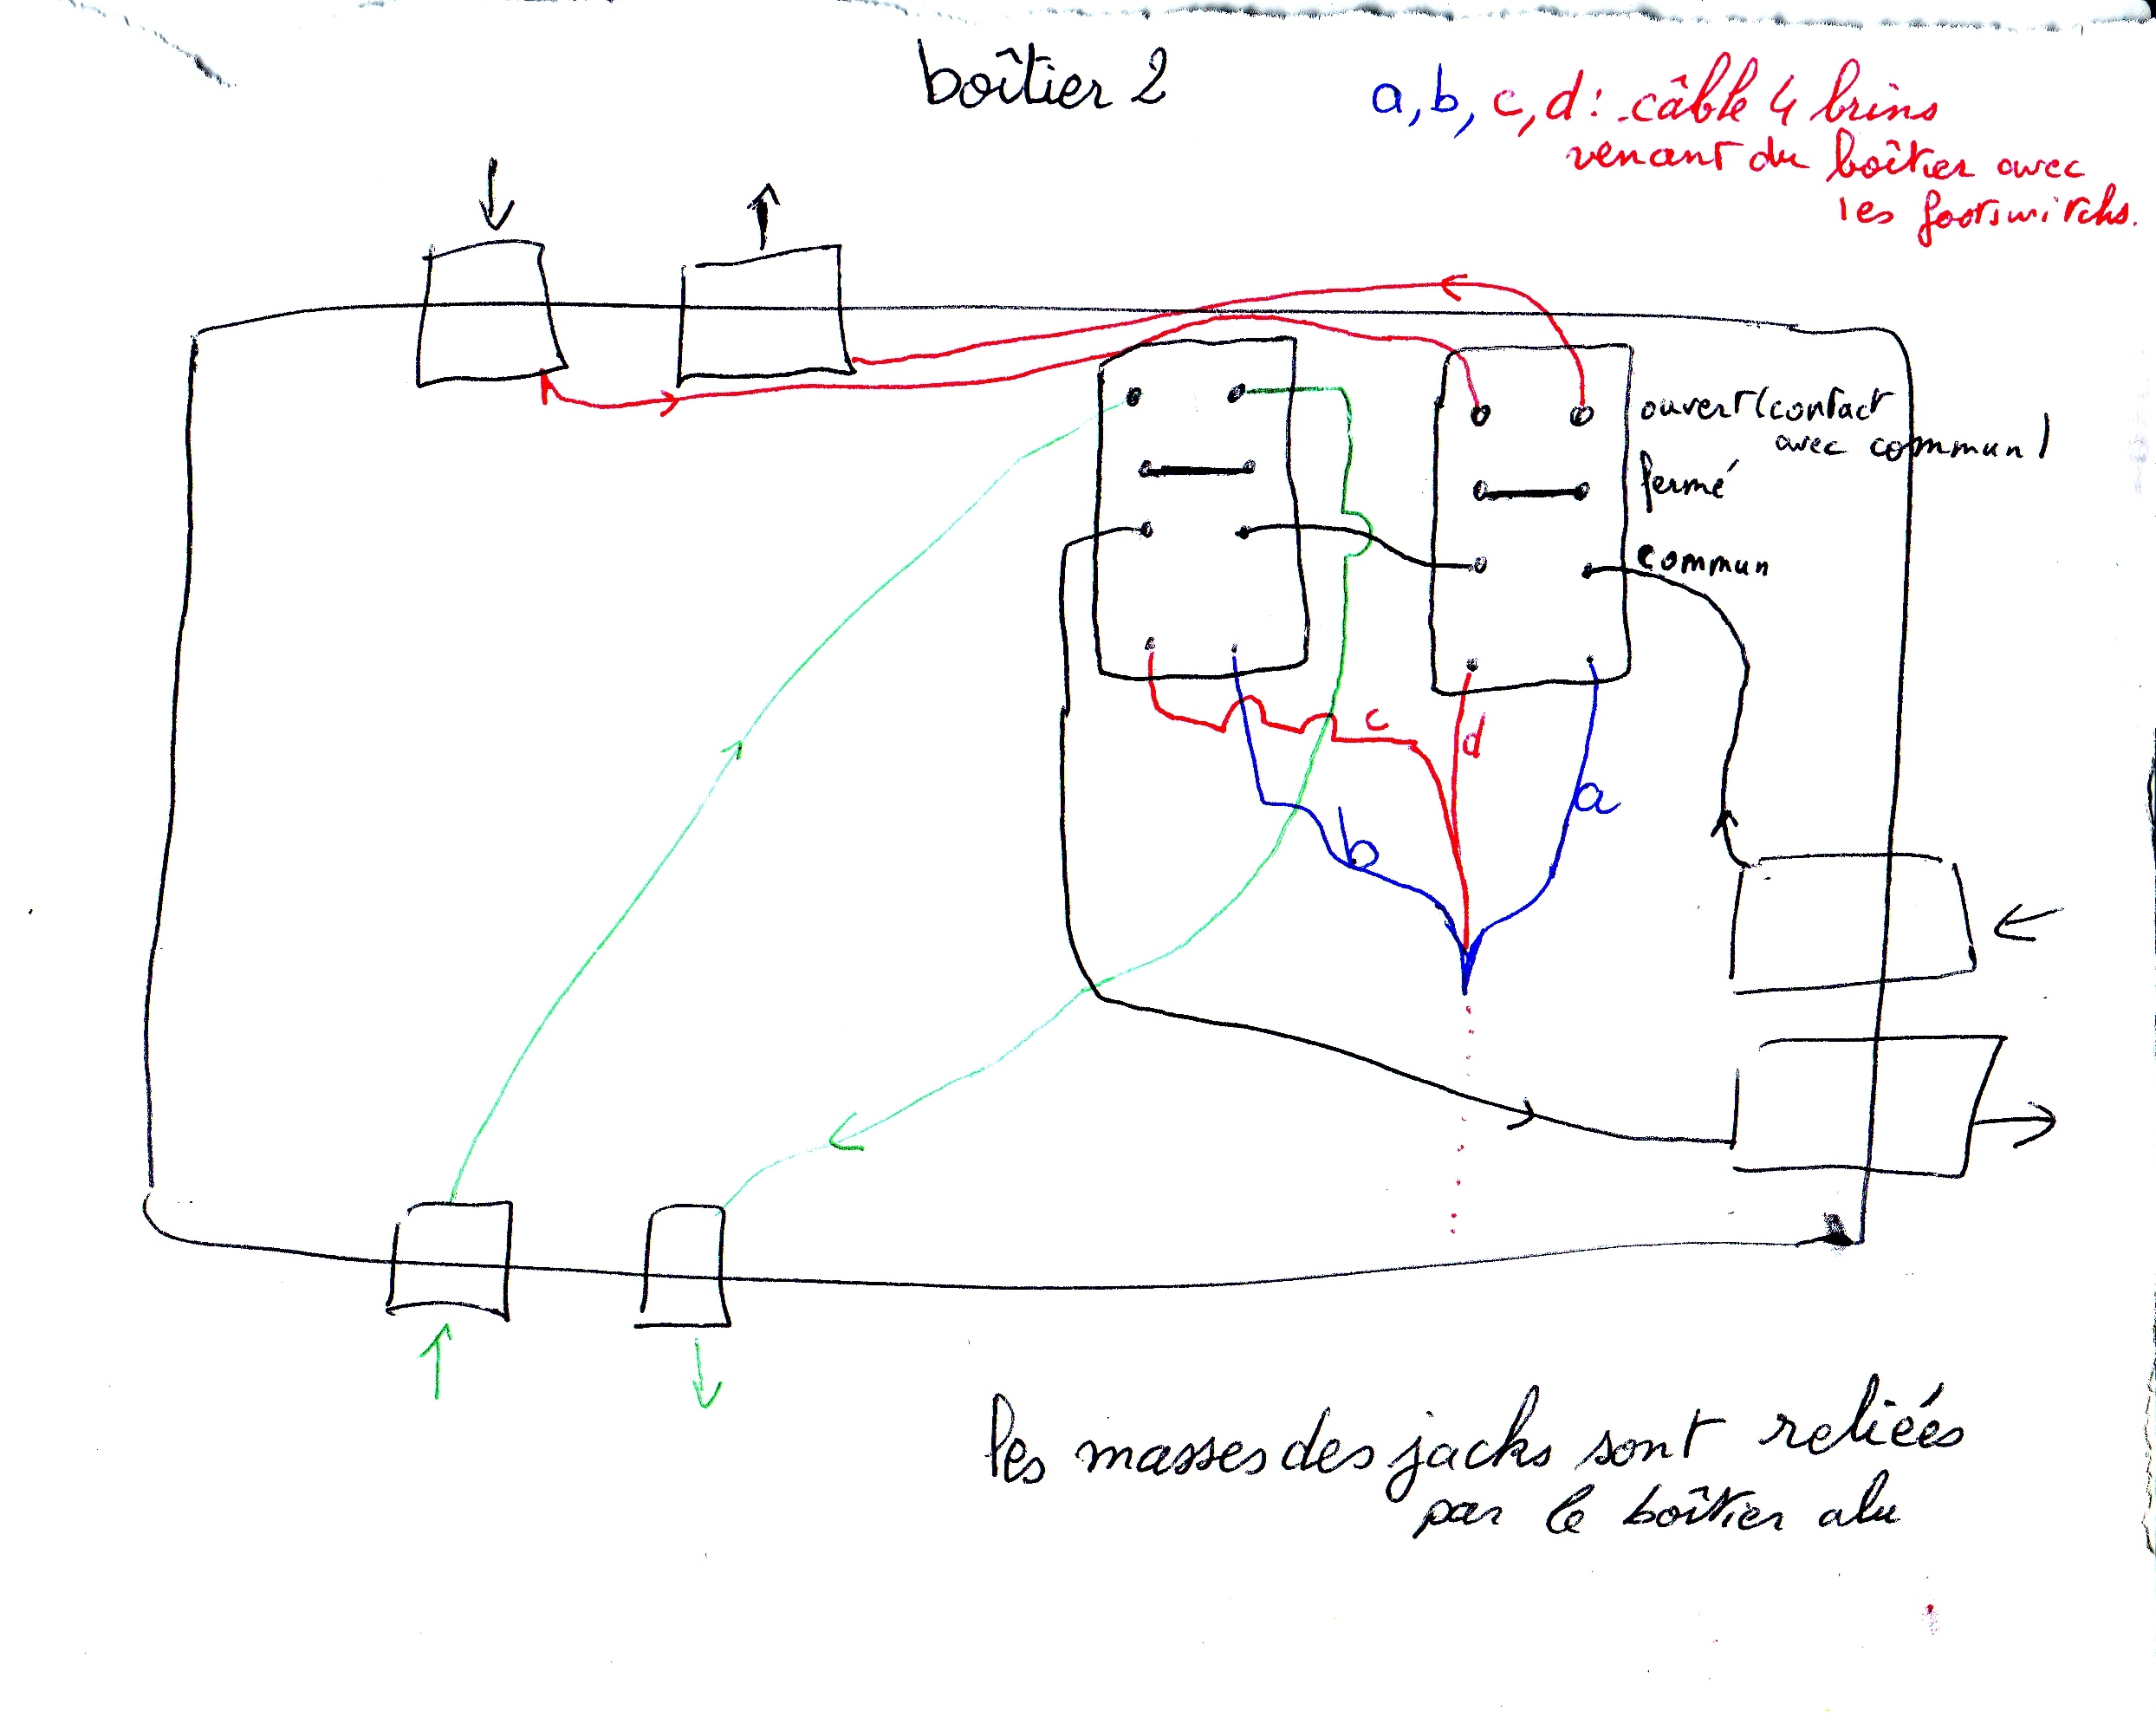 boîtier 2
a, b, c, d : câble 4 brins
venant du boîtier avec
les footswitchs.
ouvert (contact
avec commun)
fermé
commun
c
d
a
b
les masses des jacks sont reliées
par le boîtier alu